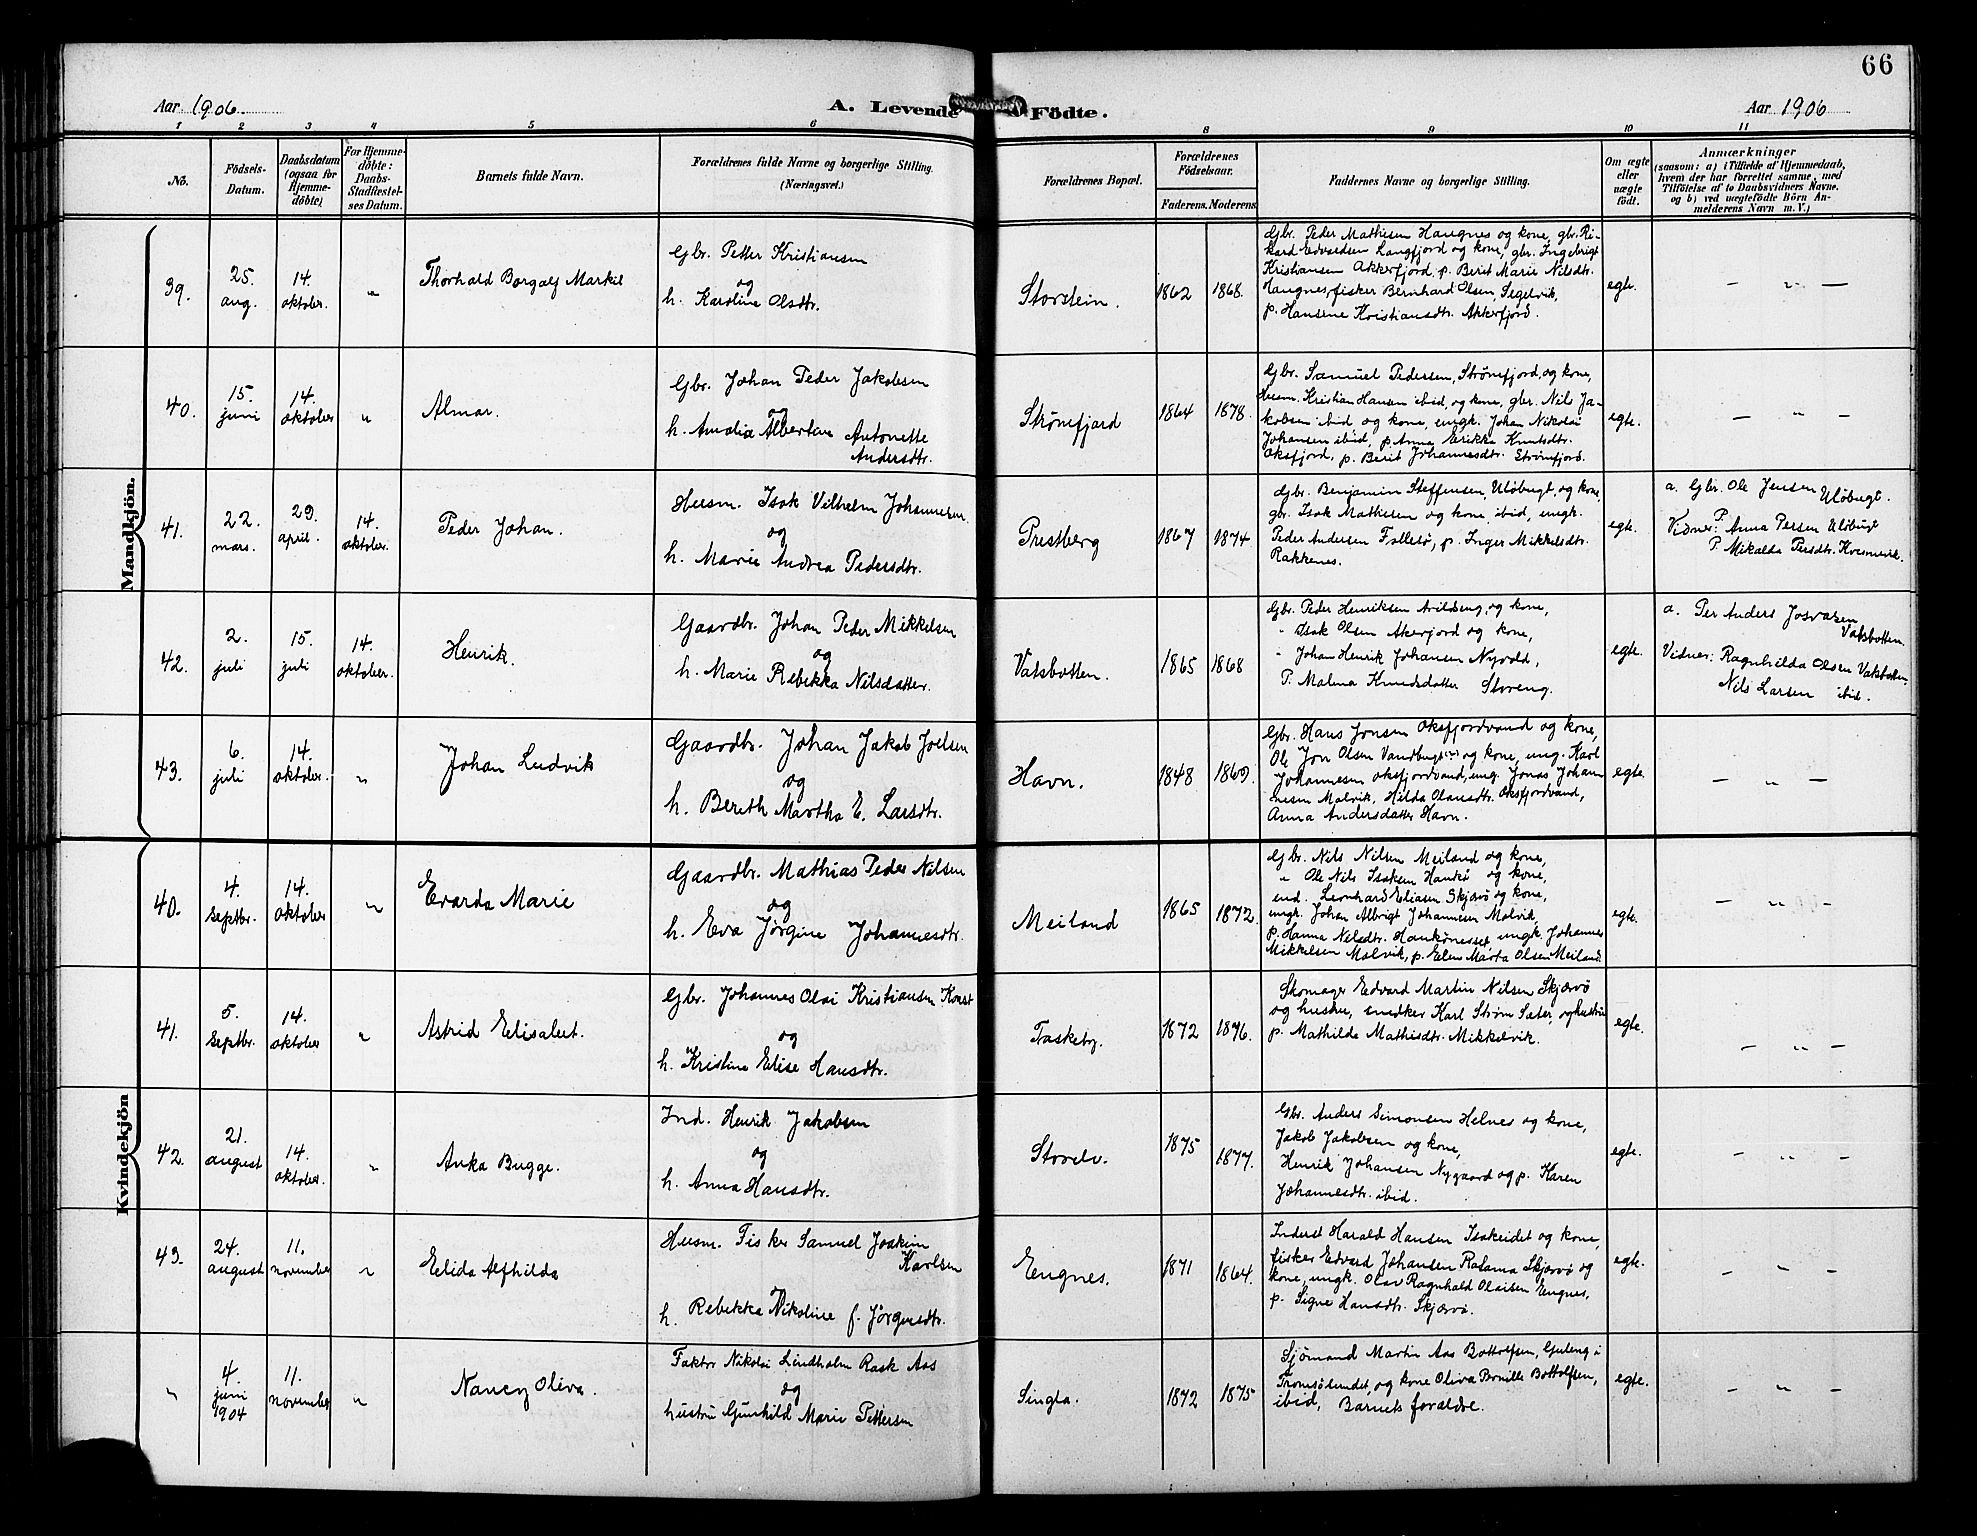 66
Aar 1906.
A. Levende Födte.
Aar 1906
1 2 3 4 5 6 8 9 10 11
No.
Födsels-Datum.
Daabsdatum (ogsaa for Hjemme-döbte)
For Hjemme-döbte: Daabs-Stadfæstel-ses Datum.
Barnets fulde Navn.
Forældrenes fulde Navne og borgerlige Stilling.
(Næringsvei.)
Forældrenes Bopæl.
Forældrenes Födselsaar.
Faderens. Moderens.
Faddernes Navne og borgerlige Stilling.
Om ægte eller uægte födt.
Anmærkninger
(saasom: a) i Tilfælde af Hjemmedaab,
hvem der har forrettet samme, med
Tilföielse af to Daabsvidners Navne.
og b) ved uægtefödte Börn An-
melderens Navn m. V.)
Mandkjön.
39.
25. aug.
14. oktober.
"
Thorhald Borgalf Markil
Gbr. Petter Kristiansen
og
h. Karoline Olsdtr.
Storstein.
1862 1868.
Gbr. Peder Mathisen Haugnes og kone, gbr. Ri-
kard Edvardsen Langfjord og kone, gbr. Ingebrigt
Kristiansen Akkerfjord, p. Berit Marie Nilsdtr.
Haugnes, fisker Bernhard Olsen, Segelvik,
p. Hansine Kristiansdtr. Akkerfjord.
egte.
— " —
40.
15. juni
14. oktober
"
Almar.
Gbr. Johan Peder Jakobsen
og
h. Amalia Albertine Antonette
Andersdtr.
Strömfjord
1864 1878.
Gbr. Samuel Pedersen, Strömfjord, og kone,
Husm. Kristian Hansen ibid, og kone, gbr. Nils Ja-
kobsen ibid og kone, ungk. Johan Nikolai
Johansen ibid, p. Anna Erikka Knutsdtr.
Oksfjord, p. Berit Johannesdtr. Strömfjord.
egte.
— " —
41.
22. mars.
29. april.
14. oktober.
Peder Johan.
Husm. Isak Vilhelm Johannesen
og
h. Marie Andrea Pedersdtr.
Prestberg
1867 1874
Gbr. Benjamin Steffensen, Ulöbugt, og kone,
gbr. Isak Mathisen og kone, ibid, ungk.
Peder Andersen Follesö, p. Inger Mikkelsdtr.
Rakkenes.
egte.
a. Gbr. Ole Jensen Ulöbugt.
Vidner: P. Anna Persen Ulöbugt
P. Mikalda Persdtr. Kvænvik.
42.
2. juli
15. juli
14. oktober.
Henrik.
Gaardbr. Johan Peder Mikkelsen
og
h. Marie Rebekka Nilsdatter.
Vatsbotten.
1865 1868
Gbr. Peder Henriksen Nilsberg, og kone,
" Isak Olsen Akerfjord og kone,
" Johan Henrik Johansen Nyvold,
P. Malena Knudsdatter Storeng.
egte.
a. Per Anders Josvasen
Vatsbotten.
Vidner: Ragnhilda Olsen Vatsbotten,
Nils Larsen ibid.
43.
6. juli
14. oktober.
"
Johan Ludvik
Gaardbr. Johan Jakob Joelsen
og
h. Bereth Martha E. Larsdtr.
Havn.
1848 1869.
Gbr. Hans Jonsen Oksfjordvand og kone,
Ole Jon Olsen Vandbugt og kone, ung. Karl
Johannesen oksfjordvand, ung. Jonas Johan
nesen Malvik, Hilda Olausdtr. Oksfjordvand,
Anna Andersdatter Havn.
egte.
— " —
Kvindekjön
40.
4. Septbr.
14. oktober
"
Evarda Marie
Gaardbr. Mathias Peder Nilsen
og
h. Eva Jörgine Johannesdtr.
Meiland
1865 1872.
Gbr. Nils Nilsen Meiland og kone,
" Ole Nils Isaksen Haukö og kone,
ind. Leonhard Eliasen Skjærö og kone,
ungk. Johan Albrigt Johannesen Malvik,
p. Hanna Nilsdtr. Haukönesset, ungk. Johannes
Mikkelsen Malvik, p. Elen Marta Olsen Meiland.
egte.
— " —
41.
5. Septbr.
14. oktober
"
Astrid Elisabet.
Gbr. Johannes Olai Kristiansen Kont
og
h. Kristine Elise Hansdtr.
Taskeby.
1872 1876.
Skomager Edvard Martin Nilsen Skjærvö
og hustru, snedker Karl Ström Sæter, og hustru
p. Mathilde Mathisdtr. Mikkelvik.
egte.
— " —
42.
21. august
14. oktober.
"
Anka Bugge.
Ind. Henrik Jakobsen
og
h. Anna Hansdtr.
Storelv.
1875 1877.
Gbr. Anders Simonsen Helnes og kone,
Jakob Jakobsen og kone,
Henrik Johansen Nygaard og p. Karen
Johannesdtr. ibid.
egte.
— " —
43.
24. august
11. november
"
Elida Alfhilda
Husm. Fisker Samuel Joakim
Karlsen
og
h. Rebekka Nikoline f. Jörgensdtr.
Engnes.
1871 1864.
Inderst Harald Hansen Isakeidet og kone,
fisker Edvard Johansen Ratama Skjærvö og
kone, ungk. Olav Ragnhald Olaisen Engnes,
p. Signe Hansdtr. Skjærvö.
egte.
— " —
"
4. juni 1904
11. november
"
Nancy Oliva.
Faktor Nikolai Lindholm Rask Aas
og
hustru Gunhild Marie Pettersen
Singla.
1872 1875
Sjömand Martin Aas Bottolfsen, Guleng i
Tromsösundet, og kone Oliva Pernille Bottolfsen,
ibid, Barnets forældre.
egte.
— " —